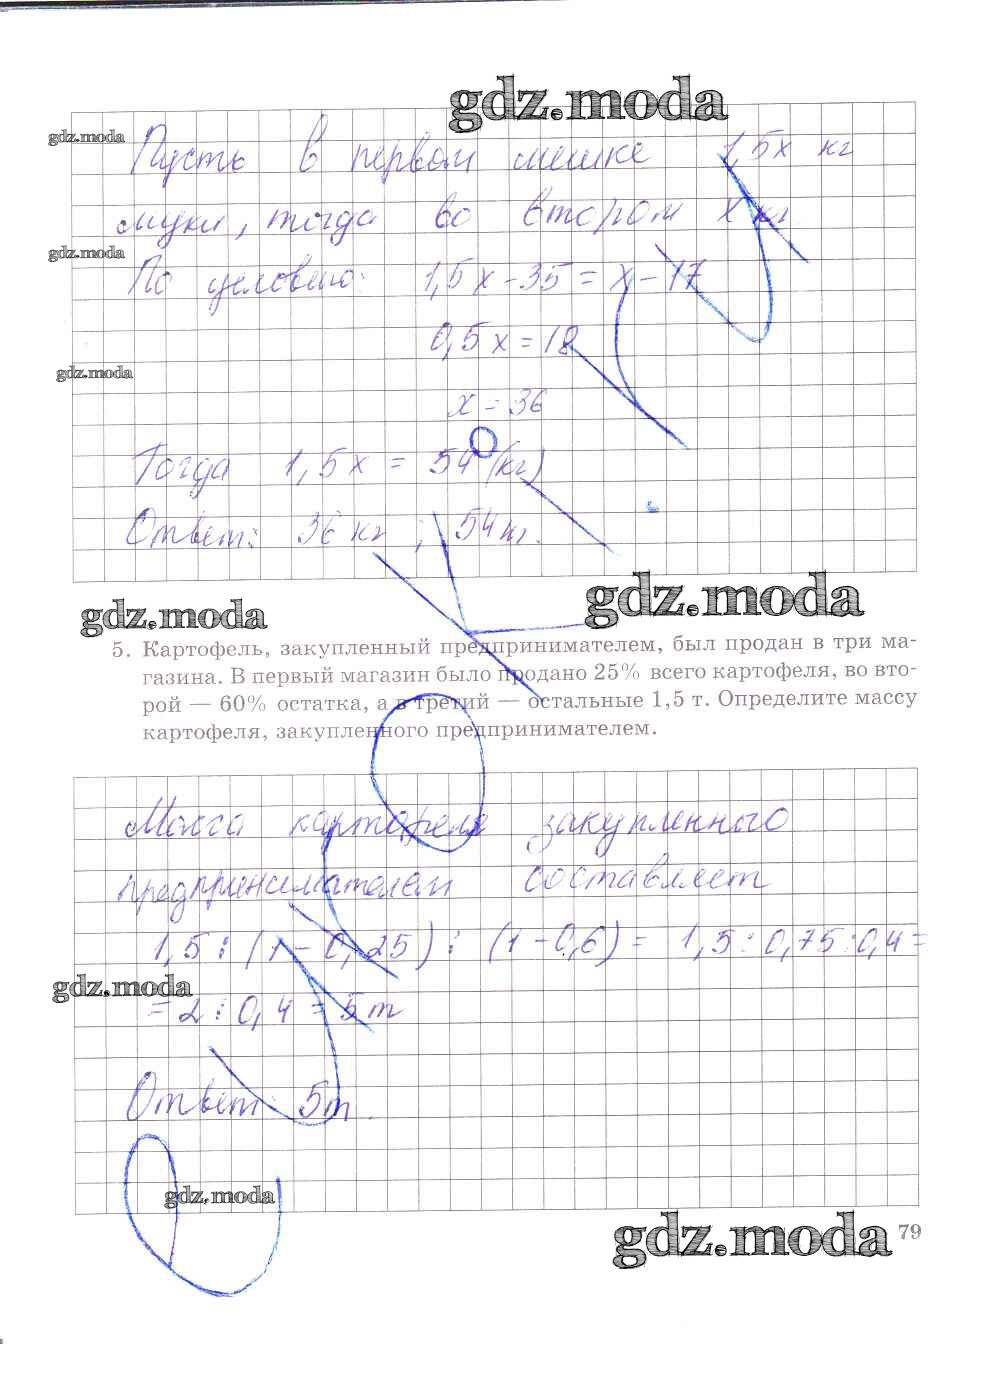 gdz.moda
gdz.moda
Пусть в первом мешке 1,5x кг
муки, тогда во втором x кг
gdz.moda
По условию: 1,5x - 35 = x - 17
0,5x = 18
gdz.moda
x = 36
Тогда 1,5x = 54 (кг)
Ответ: 36 кг; 54 кг.
gdz.moda
gdz.moda
5. Картофель, закупленный предпринимателем, был продан в три ма-
газина. В первый магазин было продано 25% всего картофеля, во вто-
рой — 60% остатка, а в третий — остальные 1,5 т. Определите массу
картофеля, закупленного предпринимателем.
Масса картофеля закупленного
предпринимателем составляет
1,5 : (1 - 0,25) : (1 - 0,6) = 1,5 : 0,75 : 0,4 =
gdz.moda
= 2 : 0,4 = 5 т
Ответ: 5т.
gdz.moda
gdz.moda
79